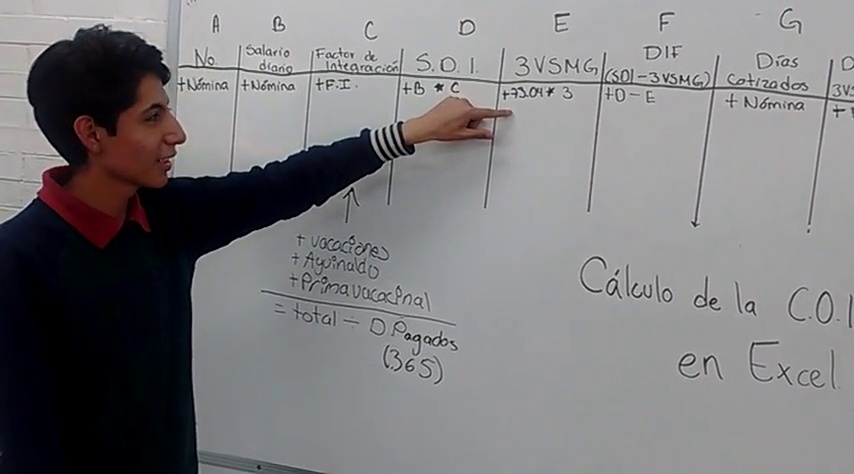 A B C D E F G
No. Salario diario Factor de integración S.D.I. 3VSMG DIF (SDI-3VSMG) Días cotizados
+Nómina +Nómina +F.I. +B * C +73.04* 3 +D-E + Nómina
+ vacaciones
+ Aguinaldo
+ Prima vacacinal
= total ÷ D.Pagados
(365)
Cálculo de la C.O.
en Excel